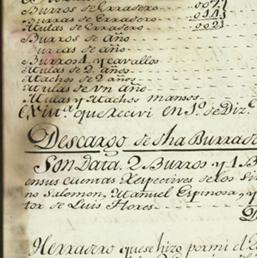 Burros de Erradero ... 0047
Burras de Erradero ... 0141
Mulas de Erradero ... 0021
Burros de año
Burras de año
Burros y cavallos
Mulas de 2. años
Machos de 2 años
Mulas de vn año
Mulas y Machos mansos
que Recivi en 1.º de Diz.e
Descargo de dha Burrada
Son Data. 2 Burros y 1 B
ensus cuentas Respectives de los Sir
no Salomon, Manuel Espinosa, y
tor de Luis Flores
Herradero que se hizo por mi el